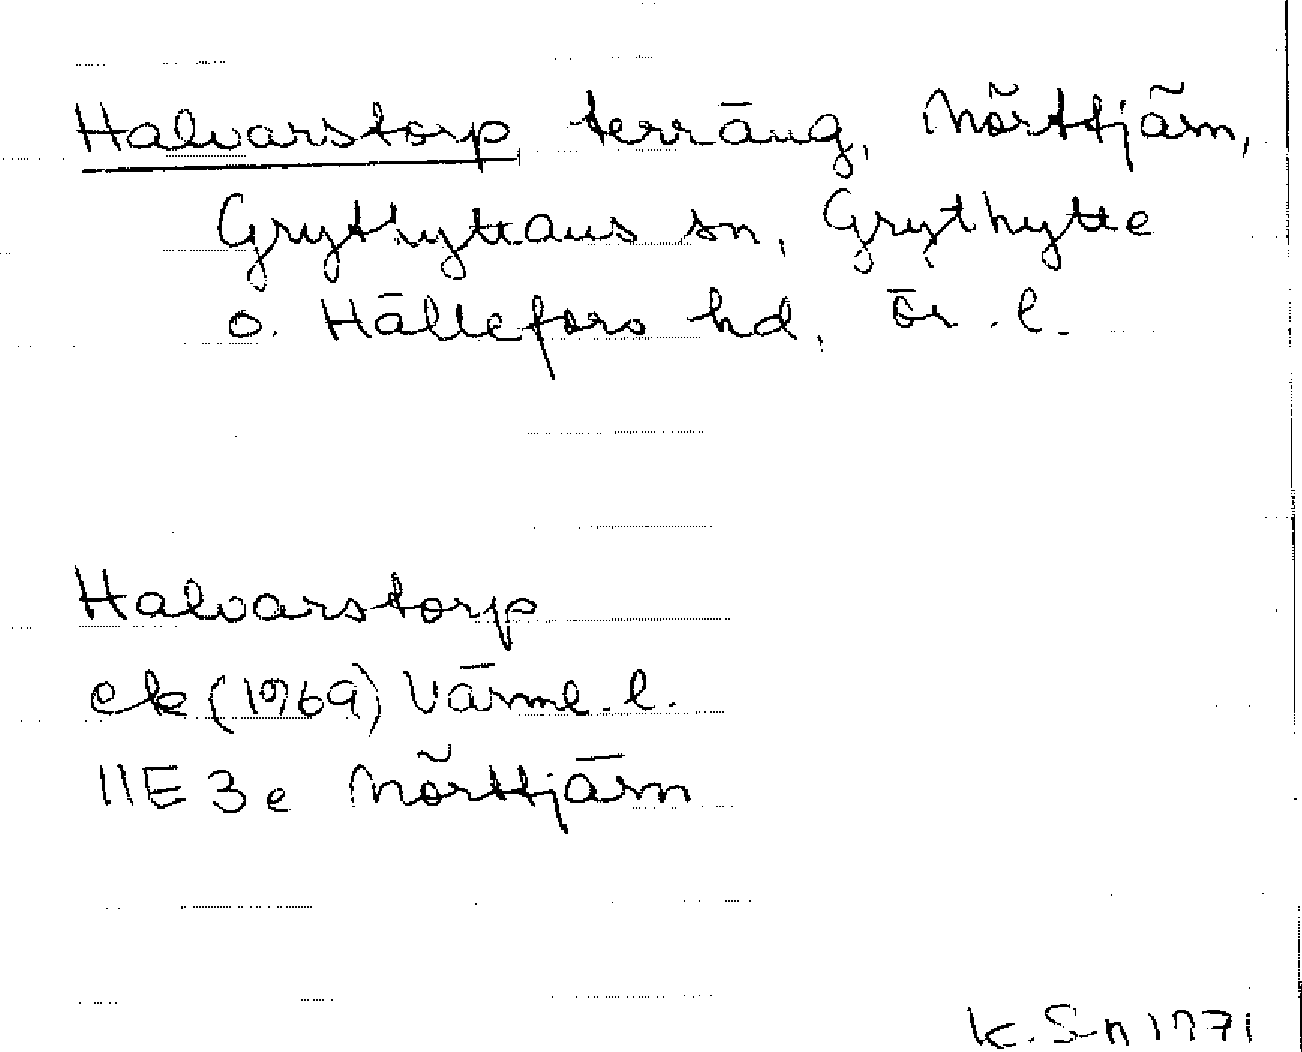 Halvarstorp terräng, Mörttjärn,
Grythyttans sn, Grythytte
o. Hällefors hd, Ör. l.
Halvarstorp
ek (1969) Värml. l.
11E 3e Mörttjärn
K. S-n 1971